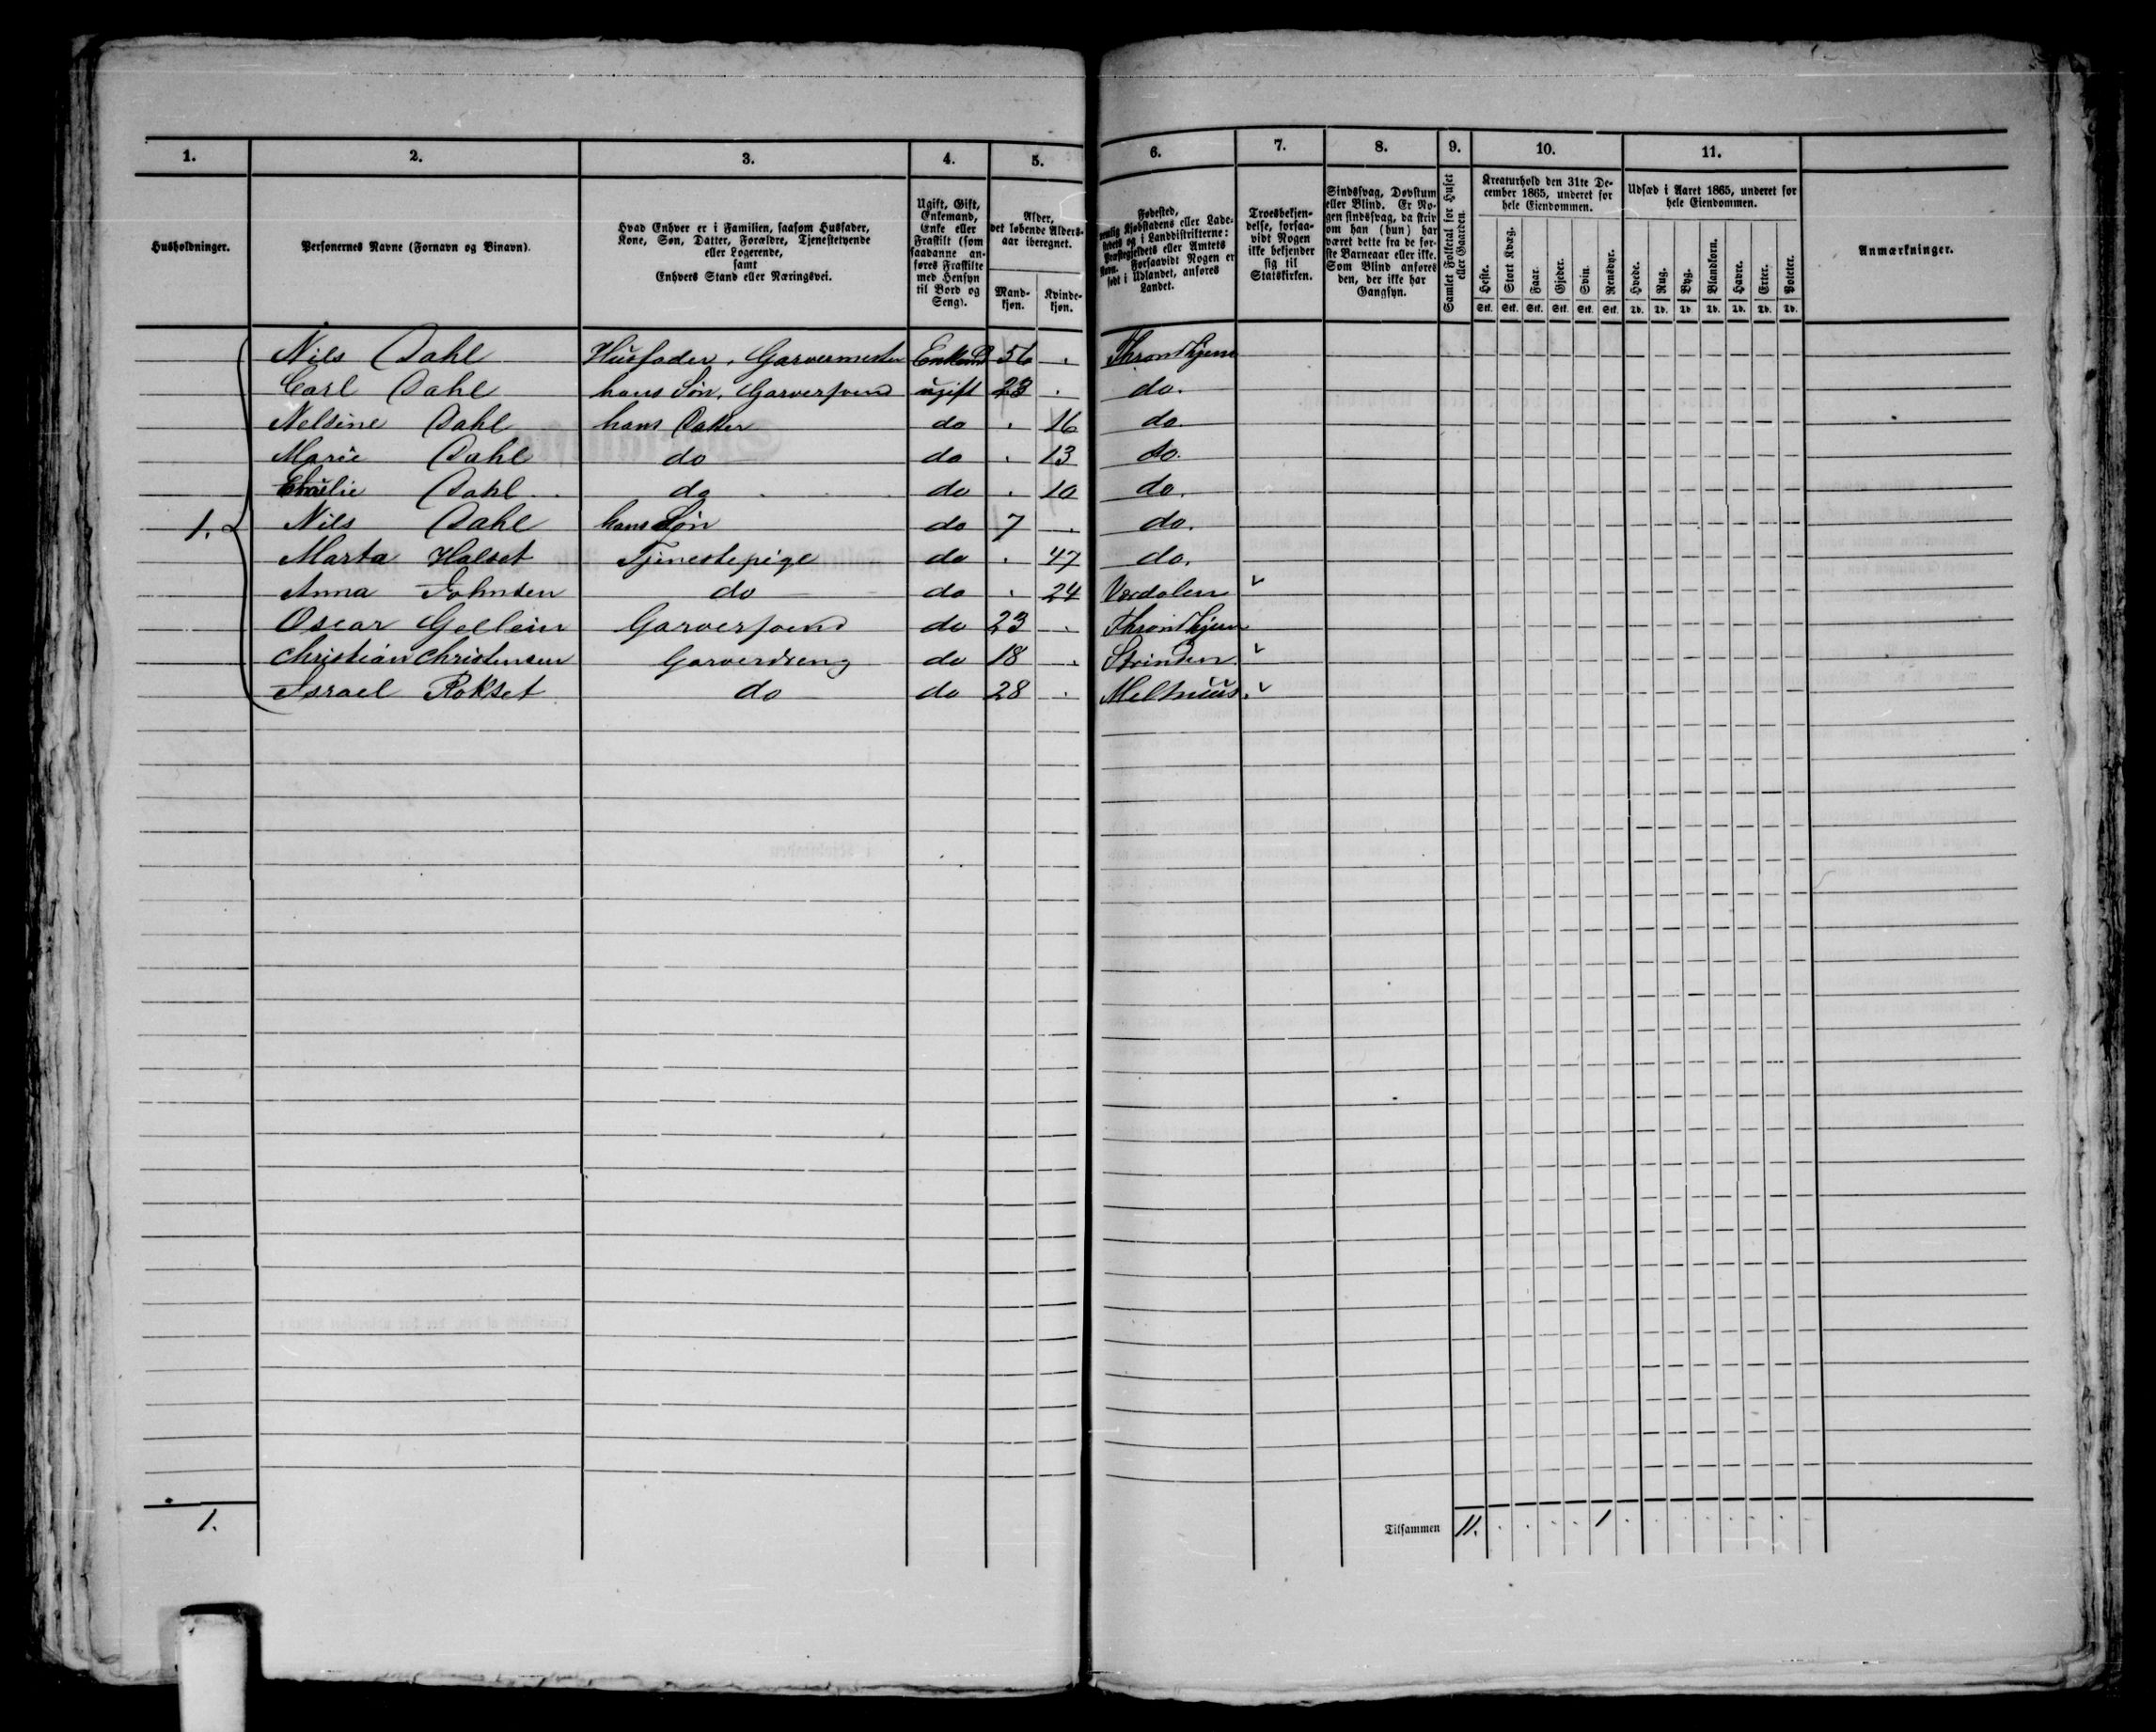 1. 2. 3. 4. 5. 6. 7. 8. 9. 10. 11.
Husholdninger.
Personernes Navne (Fornavn og Binavn).
Hvad Enhver er i Familien, saasom Husfader,
Kone, Søn, Datter, Forældre, Tjenestetyende
eller Logerende,
samt
Enhvers Stand eller Næringsvei.
Ugift, Gift,
Enkemand,
Enke eller
Fraskilt (som
saadanne an-
føres Fraskilte
med Hensyn
til Bord og
Seng).
Alder,
det løbende Alders-
aar iberegnet.
Mand-
kjøn.
Kvinde-
kjøn.
Fødested,
nemlig Kjøbstadens eller Lade-
stedets og i Landdistrikterne:
Præstegjeldets eller Amtets
Navn. Forsaavidt Nogen er
født i Udlandet, anføres
Landet.
Troesbekjen-
delse, forsaa-
vidt Nogen
ikke bekjender
sig til
Statskirken.
Sindssvag, Døvstum
eller Blind. Er No-
gen sindssvag, da skriv
om han (hun) har
været dette fra de før-
ste Barneaar eller ikke.
Som Blind anføres
den, der ikke har
Gangsyn.
Samlet Folketal for Huset
eller Gaarden.
Kreaturhold den 31te De-
cember 1865, underet for
hele Eiendommen.
Heste. Stort Kvæg. Faar. Gjeder. Svin. Rensdyr.
Stk. Stk. Stk. Stk. Stk. Stk.
Udsæd i Aaret 1865, underet for
hele Eiendommen.
Hvede. Rug. Byg. Blandkorn. Havre. Erter. Poteter.
Td. Td. Td Td. Td. Td. Td.
Anmærkninger.
Nils Dahl Husfader, Garvermester Enkemd 56 . Throndhjem
Carl Dahl hans Søn, Garversvend ugift 23 . do.
Nelsine Dahl hans Datter do . 16 do.
Marie Dahl do do . 13 do.
Dahl do do . 10 do.
1. Nils Dahl hans Søn do 7 . do.
Marta Halset Tjenestepige do . 47 do.
Anna Johnsen do do . 24 Værdalen
Oscar Gellein Garversvend do 23 . Throndhjem
Christian Christensen Garverdreng do 18 . Strinden
Israel Rokset do do 28 . Melhuus.
1. Tilsammen 11. . . . . 1 . . . . . . .